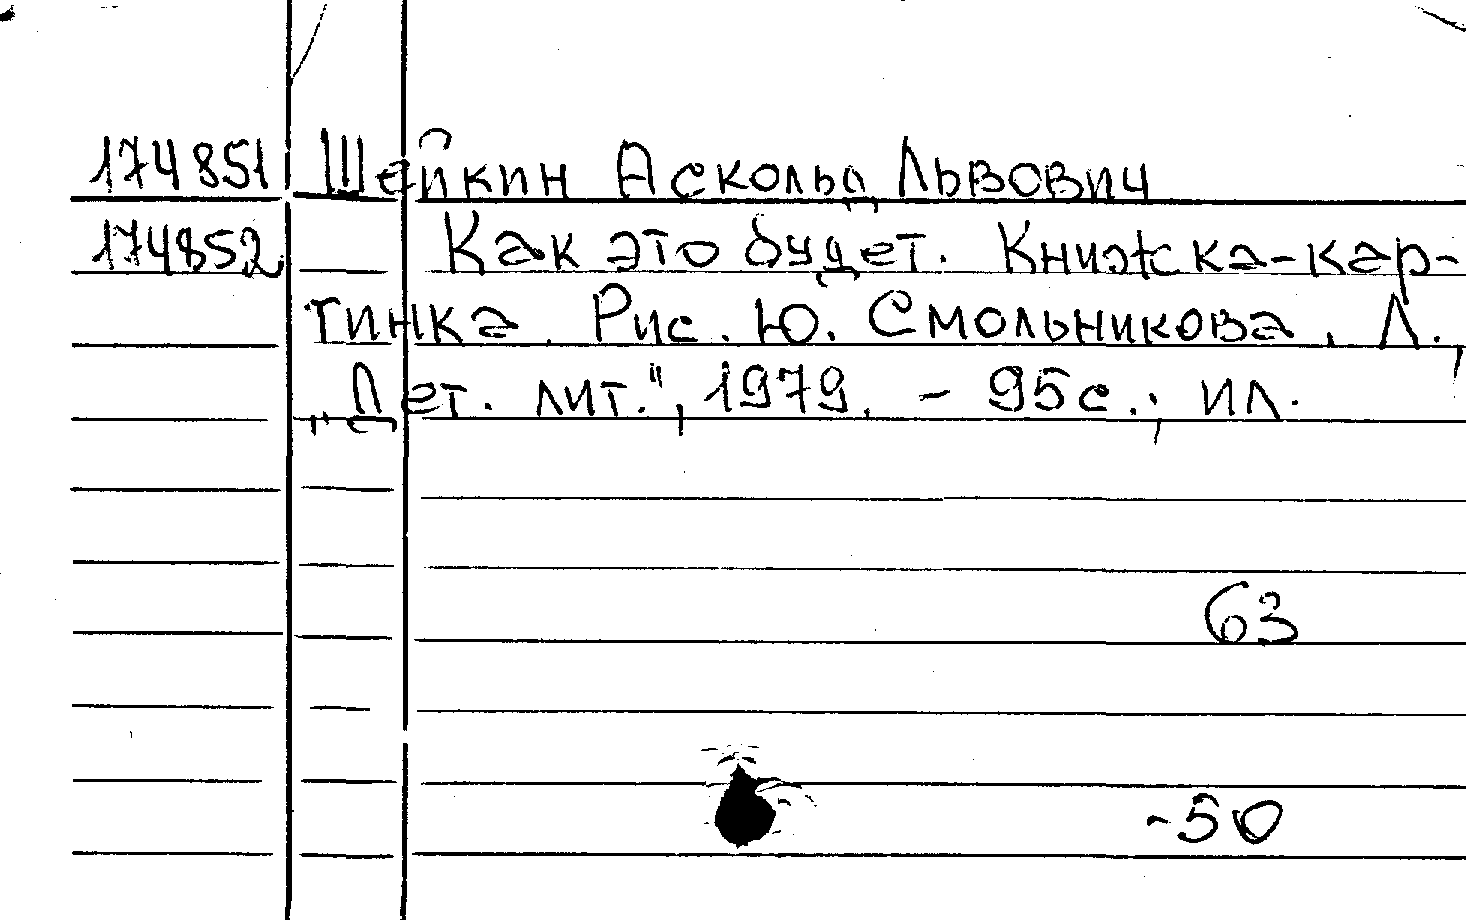 174851 Шейкин Аскольд Львович
174852 Как это будет. Книжка-кар-
тинка. Рис. Ю. Смольникова. Л.,
„Дет. лит.", 1979. - 95с.; ил.
63
-50